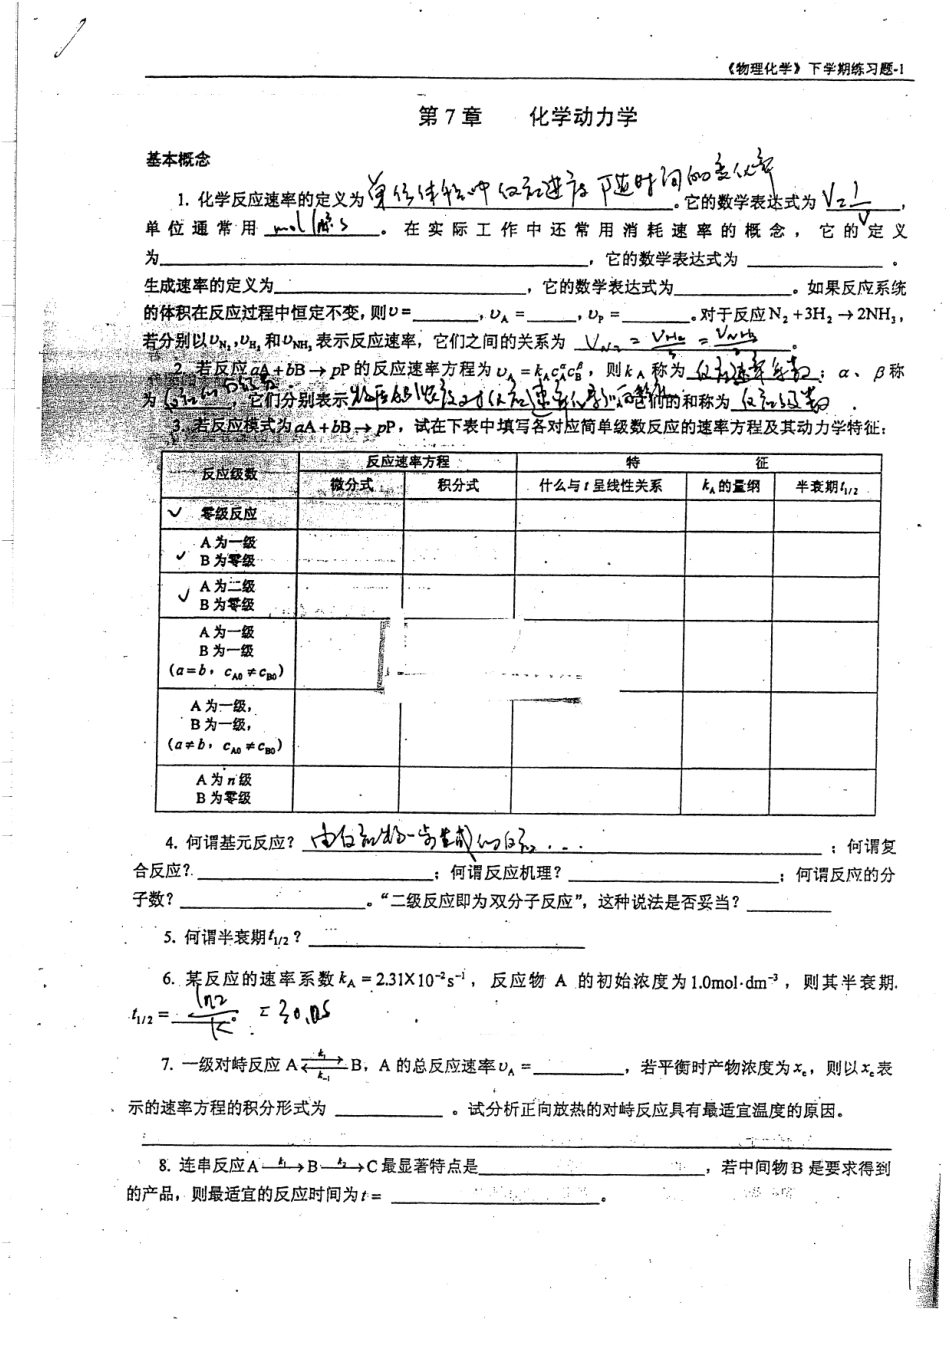 《物理化学》下学期练习题-1
第7章 化学动力学
基本概念
1. 化学反应速率的定义为单位体积中反应进度随时间的变化率。它的数学表达式为V=1/V,
单位通常用mol/。在实际工作中还常用消耗速率的概念，它的定义
为,它的数学表达式为。
生成速率的定义为,它的数学表达式为。如果反应系统
的体积在反应过程中恒定不变,则υ=,υA=,υP=。对于反应N₂+3H₂→2NH₃,
若分别以υN₂,υH₂和υNH₃表示反应速率，它们之间的关系为VN₂=VH₂=VNH₃。
2. 若反应aA+bB→pP的反应速率方程为υA=kAcAαcBβ，则kA称为反应速率系数；α、β称
为,它们分别表示物质的浓度对反应速率的影响,它们的和称为反应级数
3. 若反应模式为aA+bB→pP，试在下表中填写各对应简单级数反应的速率方程及其动力学特征:
反应级数 反应速率方程 特 征
微分式 积分式 什么与t呈线性关系 kA的量纲 半衰期t1/2
✓ 零级反应
A为一级
✓ B为零级
✓ A为二级
B为零级
A为一级
B为一级
(a=b，cA0≠cB0)
A为一级,
B为一级,
(a≠b，cA0≠cB0)
A为n级
B为零级
4. 何谓基元反应？由反应物一步生成的反应...；何谓复
合反应？；何谓反应机理？；何谓反应的分
子数？。“二级反应即为双分子反应”，这种说法是否妥当？
5. 何谓半衰期t1/2？
6. 某反应的速率系数kA=2.31X10⁻²s⁻¹，反应物A的初始浓度为1.0mol·dm⁻³，则其半衰期
t1/2=ln2/K。=30.0s
7. 一级对峙反应A⇌B，A的总反应速率υA=，若平衡时产物浓度为xe，则以xe表
示的速率方程的积分形式为。试分析正向放热的对峙反应具有最适宜温度的原因。
8. 连串反应A—k₁→B—k₂→C最显著特点是，若中间物B是要求得到
的产品，则最适宜的反应时间为t=。